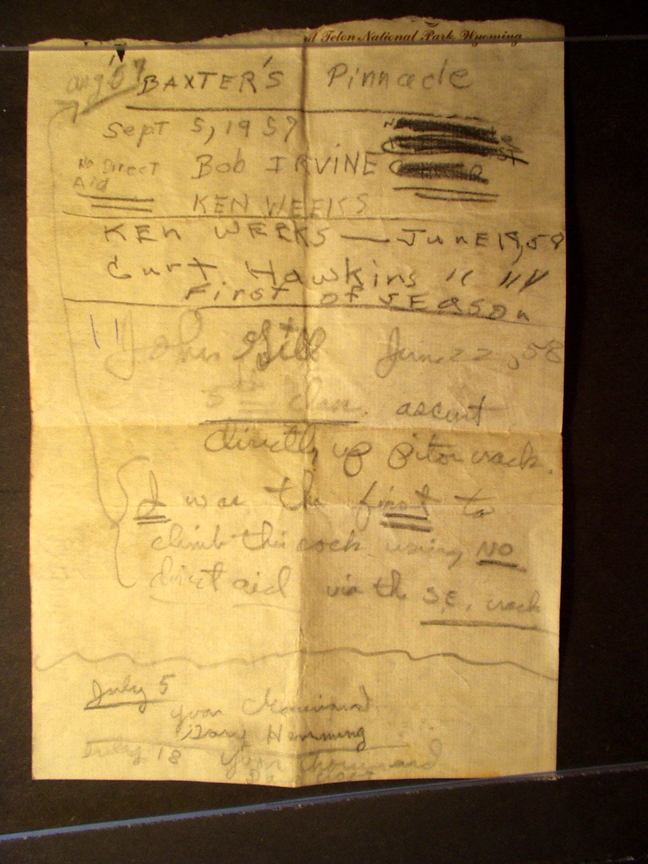 Teton National Park, Wyoming
aug '57 BAXTER'S Pinnacle
Sept 5, 1957
No Direct Aid
Bob IRVINE
KEN WEEKS
KEN WEEKS — JUNE 19, 58
Curt Hawkins " " "
First of SEASON
John Gill Jun. 22, 58
ascent
directly up piton crack.
I was the first to
climb this rock using NO
direct aid via the S.E. crack
July 5
Yvon Chouinard
Gary Hemming
July 18 Yvon Chouinard